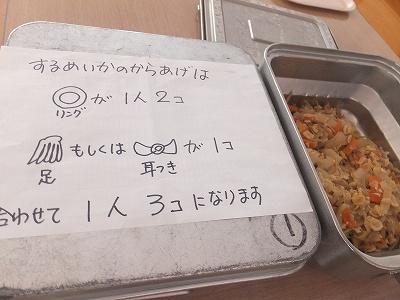 するめいかのからあげは
が1人2コ
リング
もしくは が1コ
足 耳つき
合わせて 1人 3コになります
①